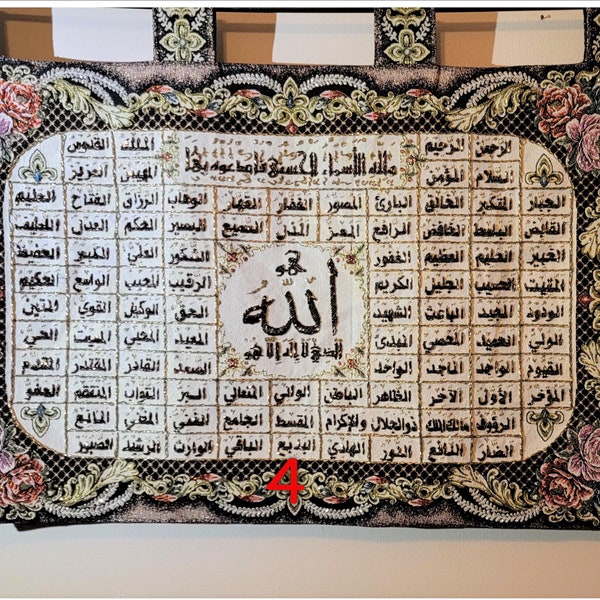 الرحمن الرحيم ولله الأسماء الحسنى فادعوه بها الملك القدوس
السلام المؤمن المهيمن العزيز
الجبار المتكبر الخالق البارئ المصور الغفار القهار الوهاب الرزاق الفتاح العليم
القابض الباسط الخافض الرافع المعز المذل السميع البصير الحكم العدل اللطيف
الخبير الحليم العظيم الغفور هو الشكور العلي الكبير الحفيظ
المقيت الحسيب الجليل الكريم الله الرقيب المجيب الواسع الحكيم
الودود المجيد الباعث الشهيد الحق الوكيل القوي المتين
الولي الحميد المحصي المبدئ الذي لا إله إلا هو المعيد المحيي المميت الحي
القيوم الواجد الماجد الواحد الصمد القادر المقتدر المقدم
المؤخر الأول الآخر الظاهر الباطن الوالي المتعالي البر التواب المنتقم العفو
الرؤوف مالك الملك ذو الجلال والإكرام المقسط الجامع الغني المغني المانع
الضار النافع النور الهادي البديع الباقي الوارث الرشيد الصبور
4